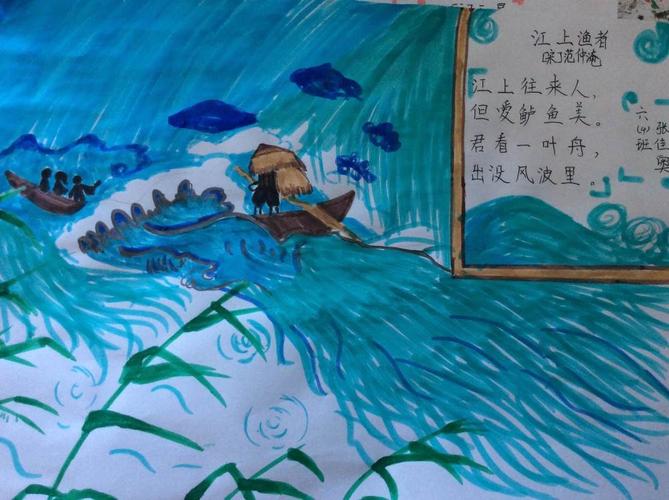 江上渔者
[宋]范仲淹
江上往来人，
但爱鲈鱼美。
君看一叶舟，
出没风波里。
六(4)班
张佳